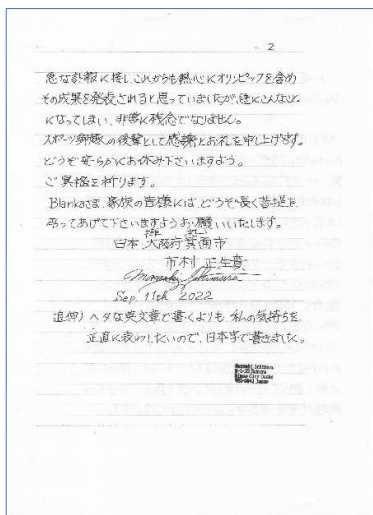 2
急な訃報に接し、これからも熱心にオリンピックを含め
その成果を発表されると思っていましたが、遂にこんなこと
になってしまい、非常に残念でなりません。
スポーツ師範の後輩として感謝とお礼を申し上げます。
どうぞ安らかにお休み下さいますよう。
ご冥福を祈ります。
Blankaさま、家族の皆様には、どうぞ長く菩提を
弔ってあげて下さいますようお願いいたします。
拝 具
日本、大阪府箕面市
市村 正
Masaki Ichimura
Sep. 11th 2022
追伸) ヘタな英文章で書くよりも 私の気持ちを
正直に表わしたいので、日本字で書きました。